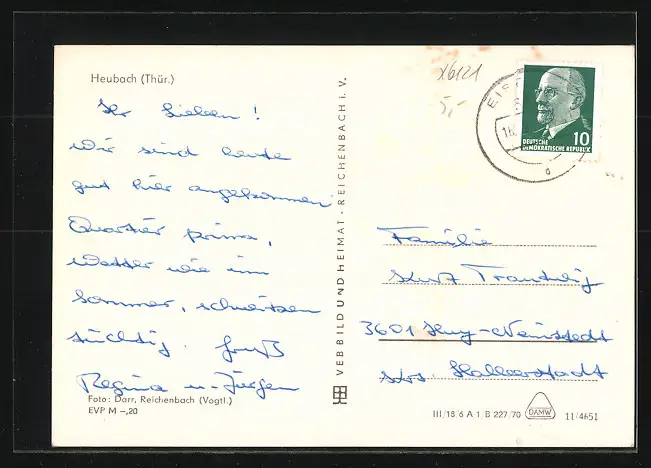 Heubach (Thür.)
Ihr Lieben!
Wir sind heute
gut hier angekommen
Quartier prima,
Wetter wie im
Sommer, schwitzen
tüchtig. Gruß
Regina u. Jürgen
Foto: Darr, Reichenbach (Vogtl.)
EVP M –,20
VEB BILD UND HEIMAT · REICHENBACH i. V.
X6121
5,-
EIS
18.
DEUTSCHE
DEMOKRATISCHE REPUBLIK
10
Familie
Kurz
3601 Huy-Neinstedt
Krs. Halberstadt
III/18/6 A 1/B 227/70
DAMW
11/4651